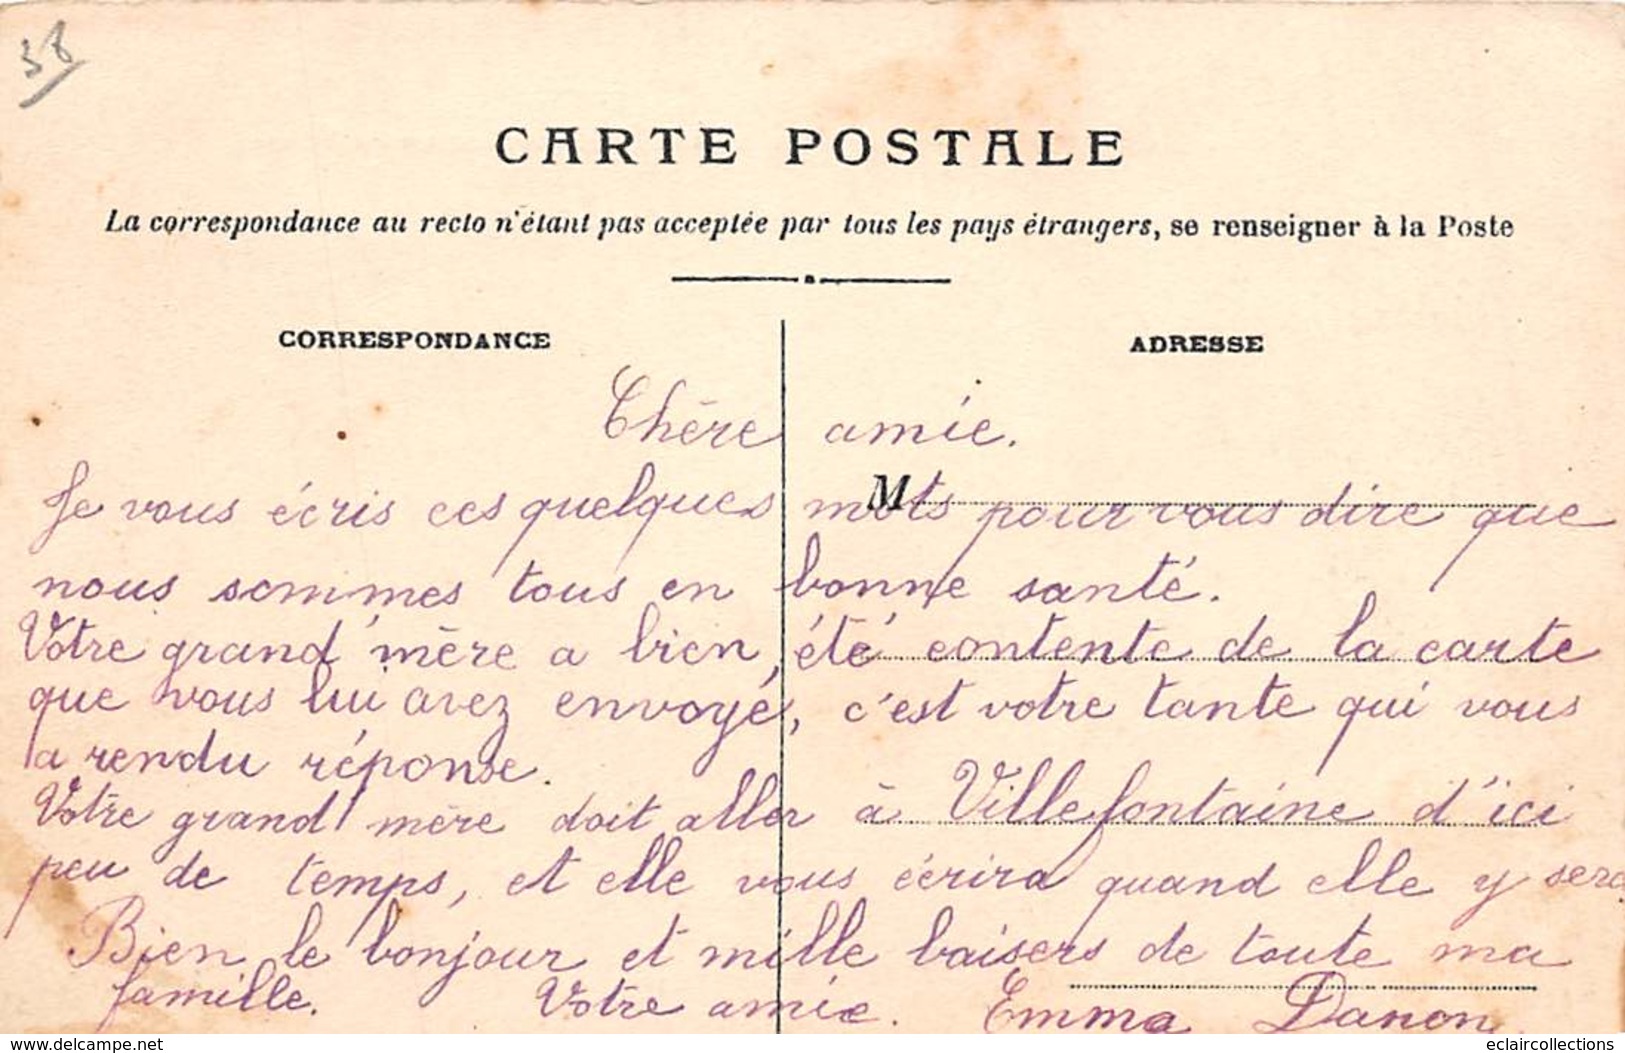 38
CARTE POSTALE
La correspondance au recto n'étant pas acceptée par tous les pays étrangers, se renseigner à la Poste
CORRESPONDANCE
ADRESSE
Chère amie.
M
Je vous écris ces quelques mots pour vous dire que
nous sommes tous en bonne santé.
Votre grand'mère a bien, été contente de la carte
que vous lui avez envoyé, c'est votre tante qui vous
a rendu réponse.
Votre grand mère doit aller à Villefontaine d'ici
peu de temps, et elle vous écrira quand elle y sera
Bien le bonjour et mille baisers de toute ma
famille. Votre amie. Emma Danon.
www.delcampe.net
eclaircollections